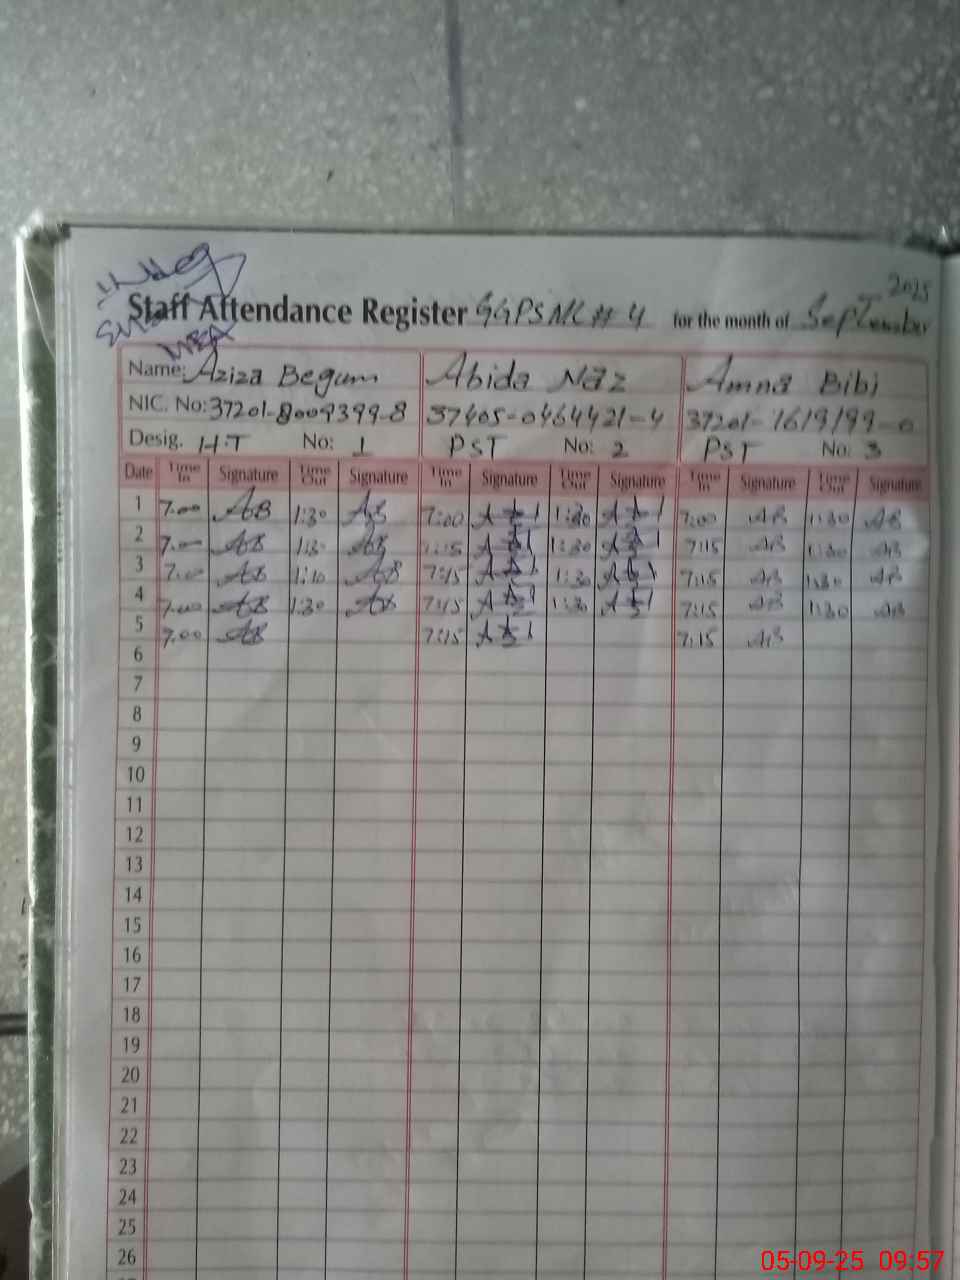 2025
Staff Attendance Register GGPS NC # 4 for the month of September
MEA
Name: Aziza Begum Abida Naz Amna Bibi
NIC. No: 37201-8009399-8 37405-0464421-4 37201-1619199-0
Desig. H.T No: 1 PST No: 2 PST No: 3
Date Time In Signature Time Out Signature Time In Signature Time Out Signature Time In Signature Time Out Signature
1 7.00 AB 1:30 AB 7:00 1:30 7:00 AB 1:30 AB
2 7.00 AB 1:30 AB 7:15 1:30 7:15 AB 1:30 AB
3 7.00 AB 1:10 AB 7:15 1:30 7:15 AB 1:30 AB
4 7.00 AB 1:30 AB 7:15 1:30 7:15 AB 1:30 AB
5 7.00 AB 7:15 7:15 AB
6
7
8
9
10
11
12
13
14
15
16
17
18
19
20
21
22
23
24
25
26
05-09-25 09:57